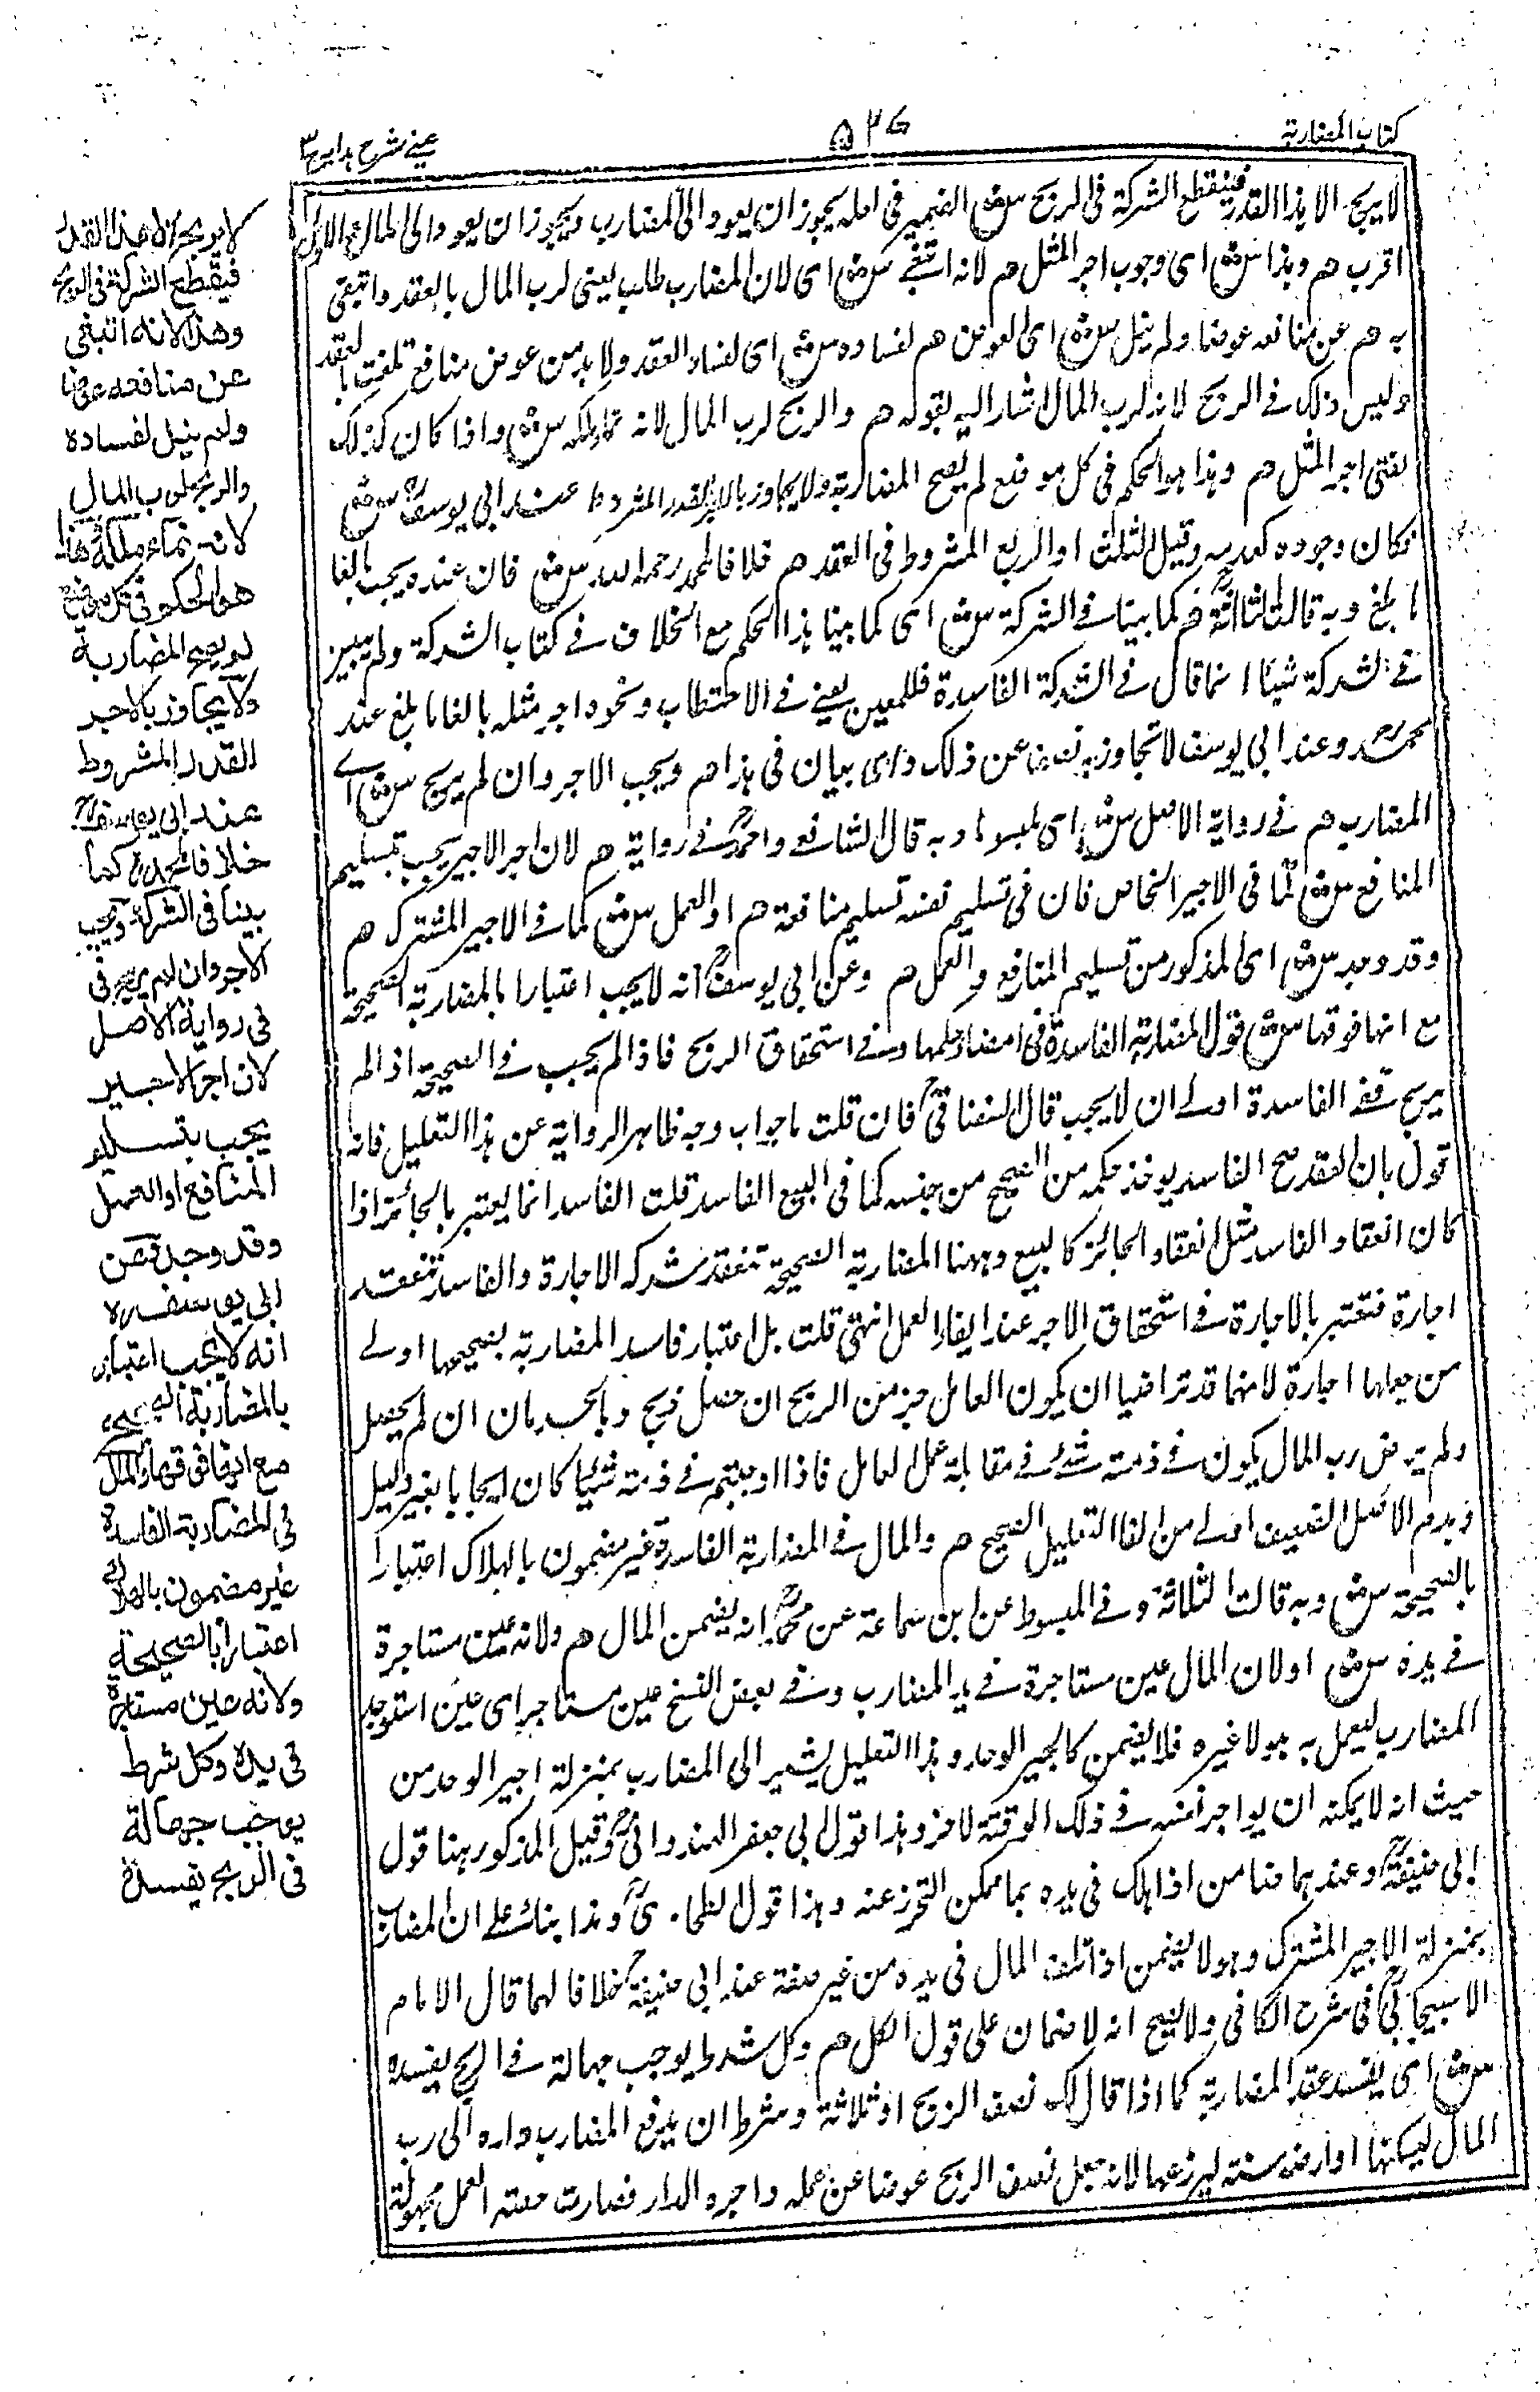 كتاب المضاربة
۵۳۷
عينى شرح هدايه ج۳
لا يربح الا هذا القدر فينقطع الشركة فى الربح ش الضمير فى لعله يجوز ان يعود الى المضارب ويجوز ان يعود الى المال الاول
اقرب هم وهذا ش اى وجوب اجر المثل هم لانه ابتغى ش اى لان المضارب طلب يعنى لرب المال بالعقد وابتغى
به هم عن منافعه عوضا ولم ينل ش اى العوض هم لفساده ش اى لفساد العقد ولا بد من عوض منافع تلفت بالعقد
وليس ذلك فى الربح لانه لرب المال اشار اليه بقوله هم والربح لرب المال لانه نماء ملكه ش واذا كان كذلك
اجر المثل هم وهذا هو الحكم فى كل موضع لم يصح المضاربة ولا يجاوز بالاجر القدر المشروط عند ابى يوسف ش
فكان وجوده وقيل الثلث او الربع المشروط فى العقد هم خلافا لمحمد رحمه الله ش فان عنده يجب بالغا
ما بلغ وبه قالت الثلاثة هم كما بينا فى الشركة ش اى كما بينا هذا الحكم مع الخلاف فى كتاب الشركة ولم يبين
فى الشركة شيئا انما قال فى الشركة الفاسدة فللمعين يعنى فى الاحتطاب ونحوه اجر مثله بالغا ما بلغ عند
محمد وعند ابى يوسف لا تجاوز به نصف عن ذلك واى بيان فى هذا هم ويجب الاجر وان لم يربح ش اى
المضارب هم فى رواية الاصل ش اى المبسوط وبه قال الشافعى واحمد فى رواية هم لان اجر الاجير يجب بتسليم
المنافع ش كما فى الاجير الخاص فان فى تسليم نفسه تسليم منافعه هم او العمل ش كما فى الاجير المشترك هم
وقد وجد ش اى المذكور من تسليم المنافع والعمل هم وعن ابى يوسف انه لا يجب اعتبارا بالمضاربة الصحيحة
مع انها فوقها ش فوق المضاربة الفاسدة فى امضاء حكمها وفى استحقاق الربح فاذا لم يجب فى الصحيحة اذا لم
يربح ففى الفاسدة اولى ان لا يجب قال السغناقى فان قلت ما جواب وجه ظاهر الرواية عن هذا التعليل فانه
قول بان العقد الفاسد يوخذ حكمه من الصحيح من جنسه كما فى البيع الفاسد قلت الفاسد انما يعتبر بالجائز اذا
كان انعقاد الفاسد مثل انعقاد الجائز كالبيع وههنا المضاربة الصحيحة تنعقد شركة لا اجارة والفاسدة تنعقد
اجارة فتعتبر بالاجارة فى استحقاق الاجر عند ايفاء العمل انتهى قلت بل اعتبار فاسد المضاربة بصحيحها اولى
من جعلها اجارة لانهما قد تراضيا ان يكون للعامل جزء من الربح ان حصل ربح وبالحرمان ان لم يحصل
ولم يرض رب المال يكون فى ذمته شئ فى مقابلة عمل العامل فاذا اوجبتم فى ذمته شيئا كان ايجابا بغير دليل
وهدم الاصل الضعيف اولى من الغاء التعليل الصحيح هم والمال فى المضاربة الفاسدة غير مضمون بالهلاك اعتبارا
بالصحيحة ش وبه قالت الثلاثة وفى المبسوط عن ابن سماعة عن محمد انه يضمن المال هم ولانه عين مستاجرة
فى يده ش اولان المال عين مستاجرة فى يد المضارب وفى بعض النسخ عين مستاجر اى عين استوجر
المضارب ليعمل به هو لا غيره فلا يضمن كالاجير الوحد وهذا التعليل يشير الى المضارب بمنزلة اجير الوحد من
حيث انه لا يمكنه ان يواجر نفسه فى ذلك الوقت لآخر وهذا قول ابى جعفر الهندوانى وقيل المذكور ههنا قول
ابى حنيفة وعندهما ضامن اذا هلك فى يده بما يمكن التحرز عنه وهذا قول الطحاوى وهذا بناء على ان المضارب
بمنزلة الاجير المشترك وهو لا يضمن اذا تلف المال فى يده من غير صنعه عند ابى حنيفة خلافا لهما قال الامام
الاسبيجابى فى شرح الكافى والاصح انه لا ضمان على قول الكل هم وكل شرط يوجب جهالة فى الربح يفسده
ش اى يفسد عقد المضاربة كما اذا قال لك نصف الربح او ثلاثة وشرط ان يدفع المضارب داره الى رب
المال ليسكنها او ارضه سنة ليزرعها لانه جعل نصف الربح عوضا عن عمله واجره الدار فصارت حصته العمل مجهولة
لا يربح الا هذا القدر
فينقطع الشركة فى الربح
وهذا لانه ابتغى
عن منافعه عوضا
ولم ينل لفساده
والربح لرب المال
لانه نماء ملكه وهذا
هو الحكم فى كل موضع
لم يصح المضاربة
ولا يجاوز بالاجر
القدر المشروط
عند ابى يوسف
خلافا لمحمد كما
بينا فى الشركة ويجب
الاجر وان لم يربح فى
فى رواية الاصل
لان اجر الاجير
يجب بتسليم
المنافع او العمل
وقد وجد وعن
ابى يوسف ره
انه لا يجب اعتبارا
بالمضاربة الصحيحة
مع انها فوقها والمال
فى المضاربة الفاسدة
غير مضمون بالهلاك
اعتبارا بالصحيحة
ولانه عين مستاجرة
فى يده وكل شرط
يوجب جهالة
فى الربح يفسده